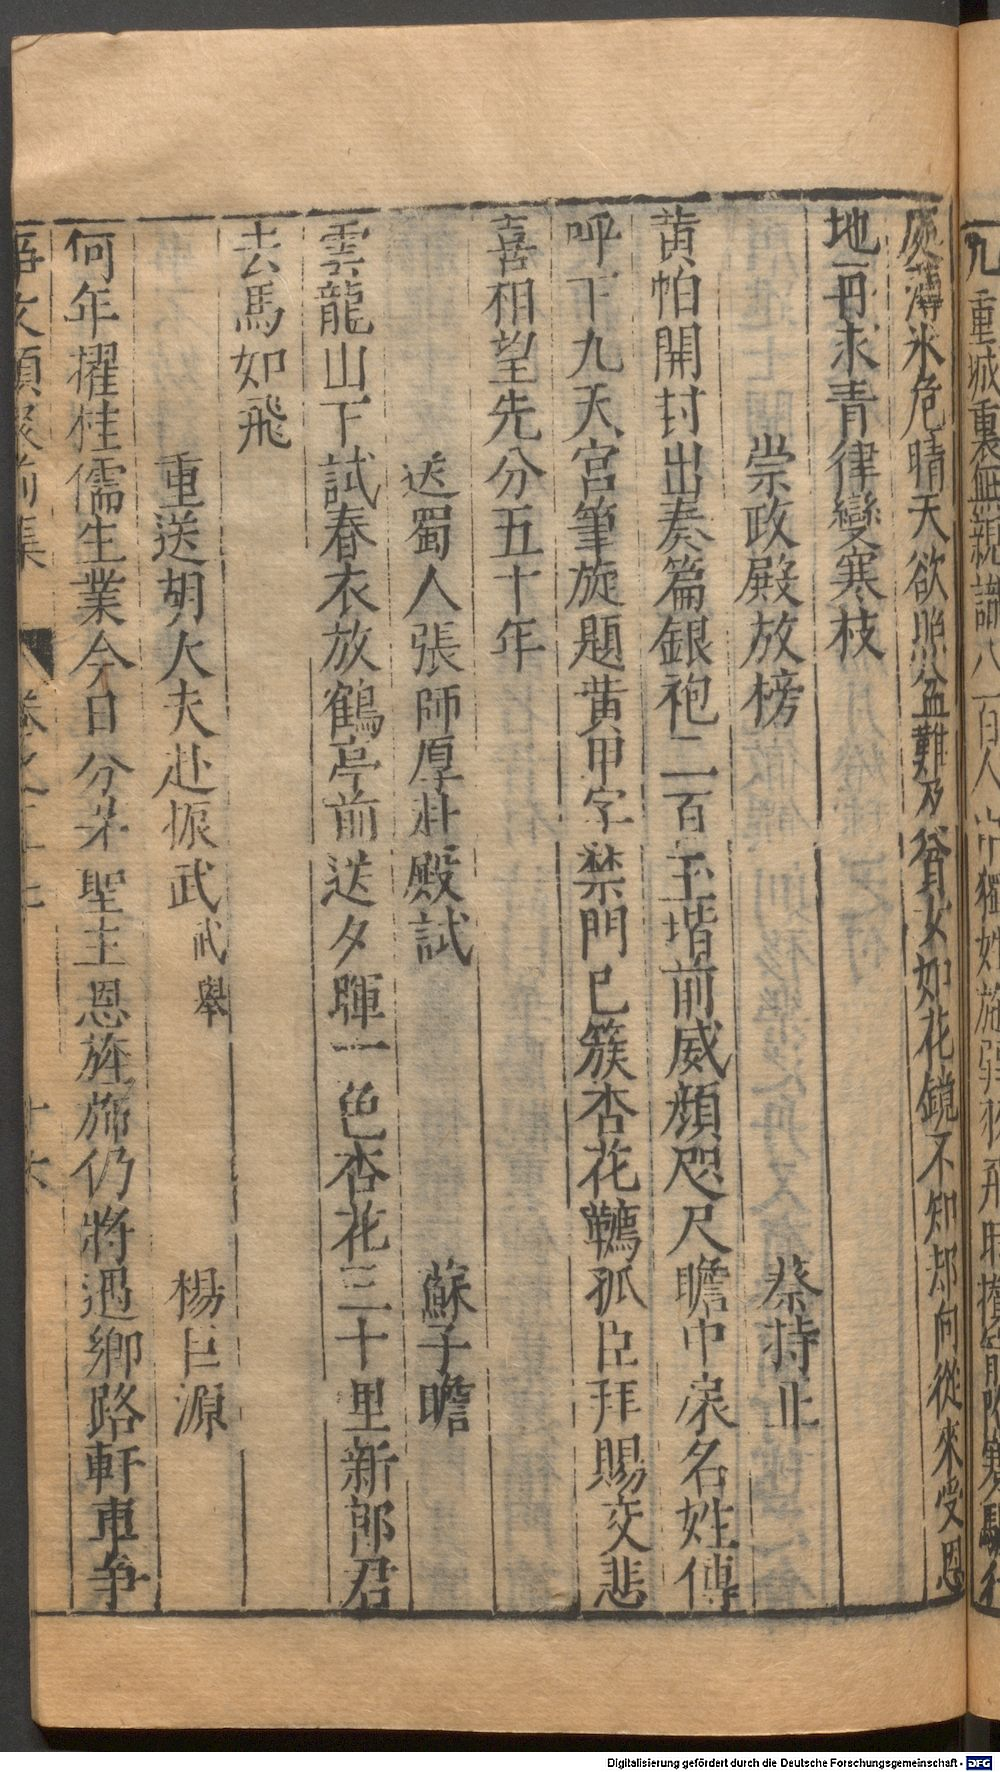 九重城裏無親識八百人中獨姓施弱羽飛時攢箭險蹇驢行
處薄氷危晴天欲照盆難及貧女如花鏡不知却向從來受恩
地再求青律變寒枝
崇政殿放榜 蔡持正
黄帕開封出奏篇銀袍二百玉堦前威顔咫尺瞻中扆名姓傳
呼下九天宫筆旋題黄甲字禁門已簇杏花韉孤臣拜賜交悲
喜相望先分五十年
送蜀人張師厚赴殿試 蘇子瞻
雲龍山下試春衣放鶴亭前送夕暉一色杏花三十里新郎君
去馬如飛
重送胡大夫赴振武武舉 楊巨源
何年擢桂儒生業今日分茅聖主恩旌斾仍將過鄉路軒車争
事文類聚前集 卷之二十七 十六
Digitalisierung gefördert durch die Deutsche Forschungsgemeinschaft - DFG